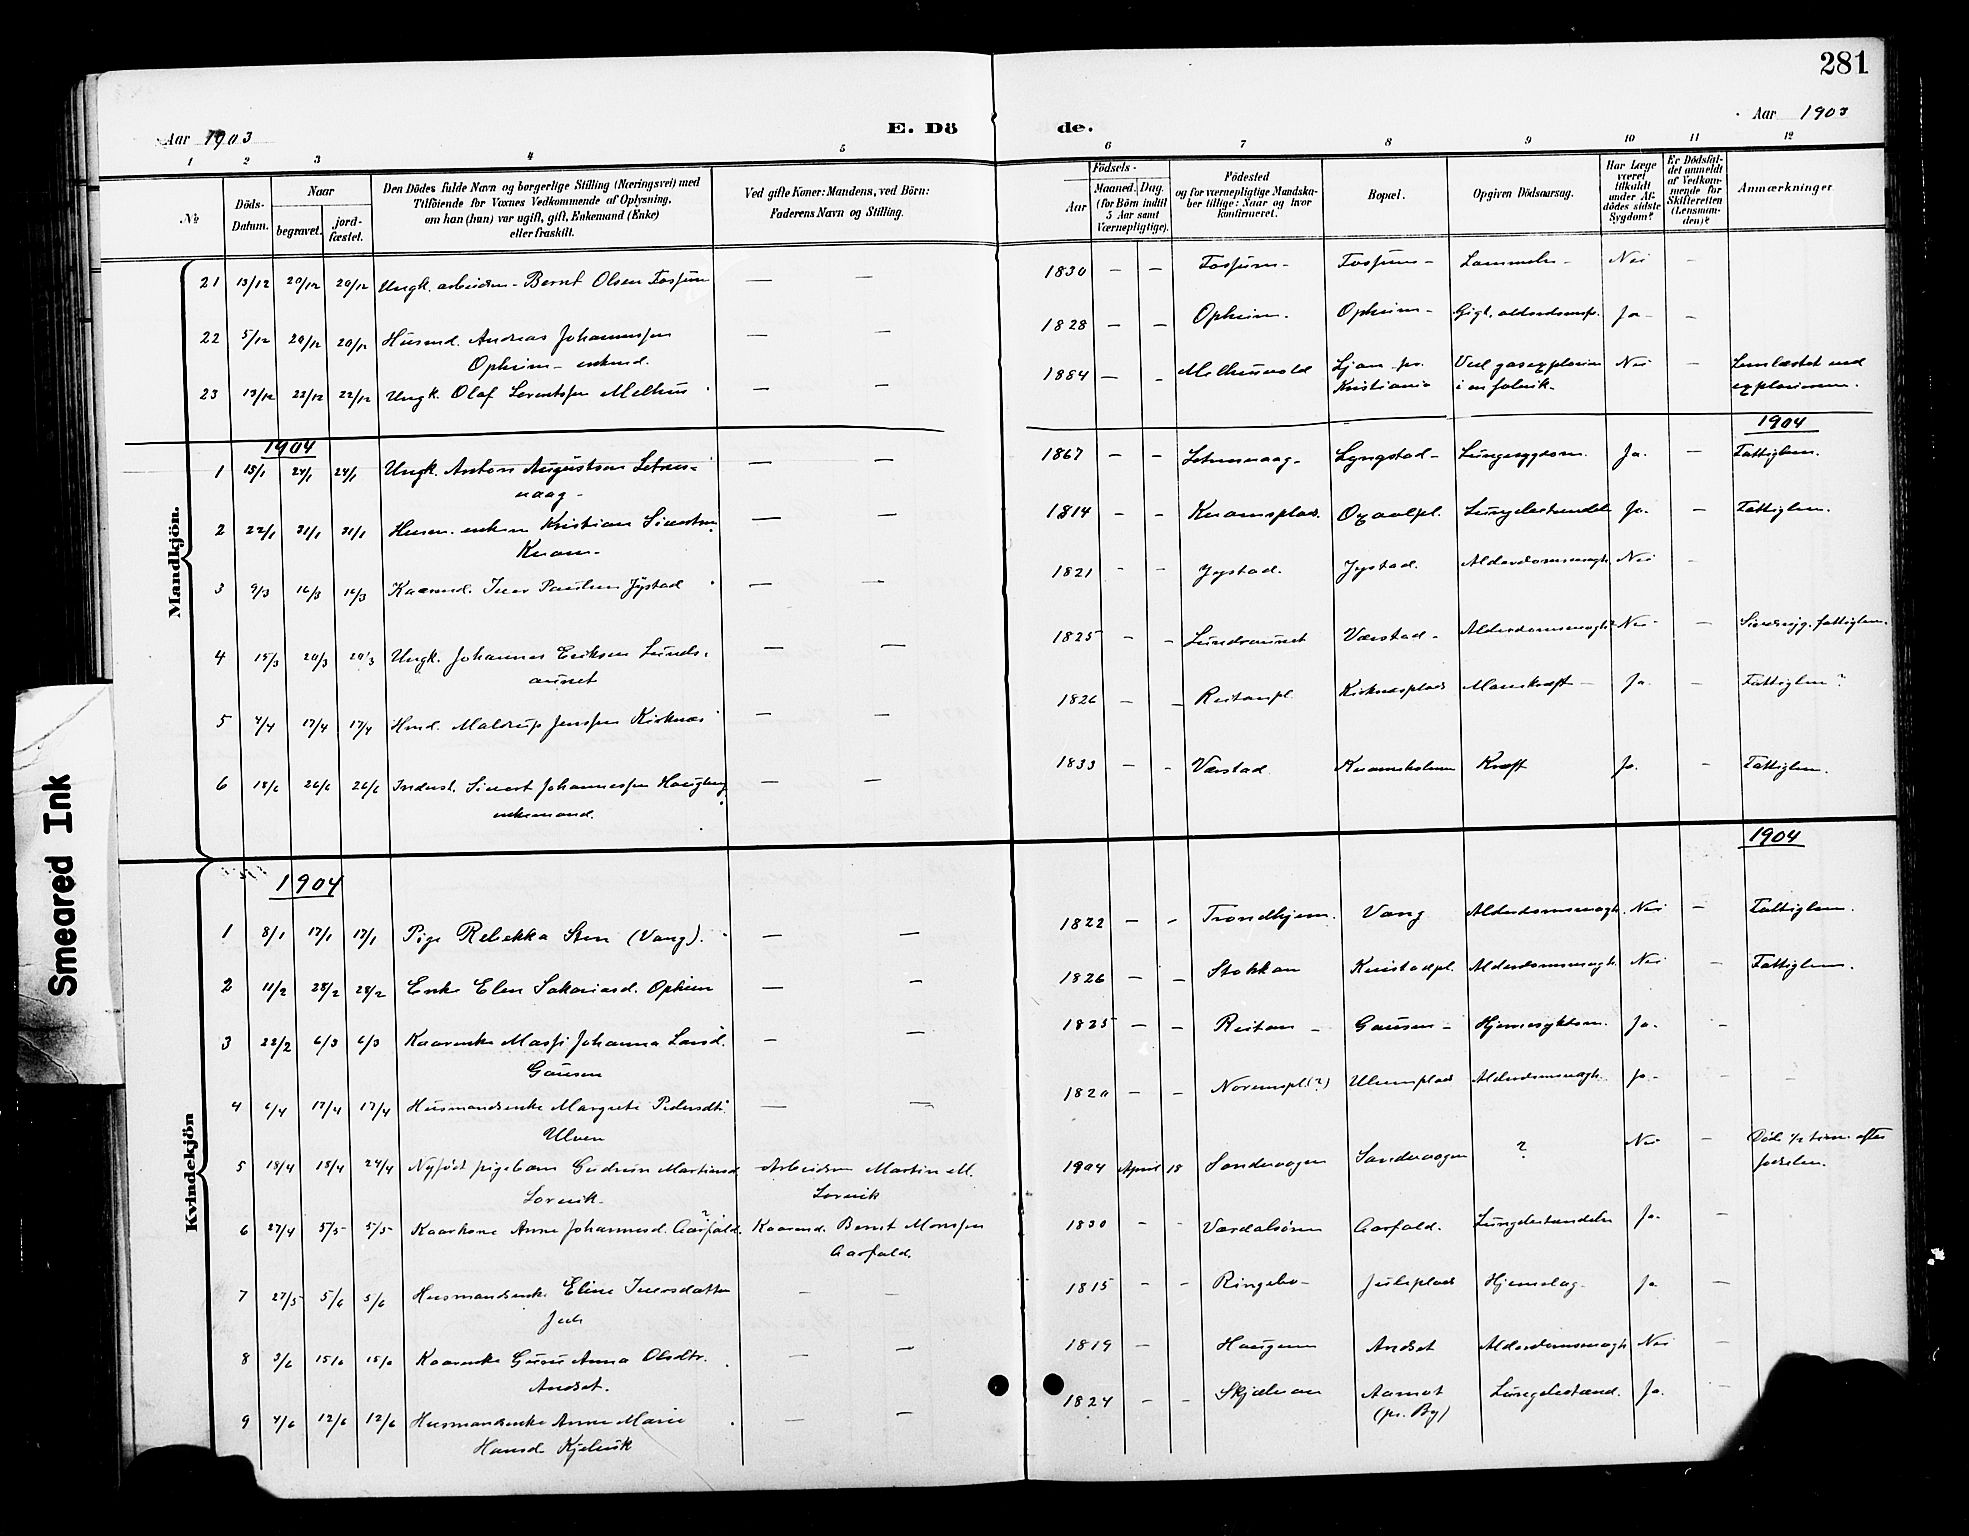 281
Aar 1903
E. Dö
de.
Aar 1903
1 2 3 4 5 6 7 8 9 10 11 12
№
Döds-Datum.
Naar
begravet.
jord-fæstet.
Den Dödes fulde Navn og borgerlige Stilling (Næringsvei) med
Tilföiende for Voxnes Vedkommende af Oplysning,
om han (hun) var ugift, gift, Enkemand (Enke)
eller fraskilt.
Ved gifte Koner: Mandens, ved Börn:
Faderens Navn og Stilling.
Födsels-
Aar
Maaned. Dag.
(for Börn indtil
5 Aar samt
Værnepligtige).
Födested
og for værnepligtige Mandska-
ber tillige: Naar og hvor
konfirmeret.
Bopæl.
Opgiven Dödsaarsag.
Har Læge
været
tilkaldt
under Af-
dödes sidste
Sygdom?
Er Dödsfal-
det anmeldt
af Vedkom-
mende for
Skifteretten
(Lensman-
den)?
Anmærkninger
Mandkjön.
21 13/12 20/12 20/12 Ungk. arbeider - Bernt Olsen Fossum — — 1830 — — Fossum - Fossum - Nei —
22 5/12 20/12 20/12 Husmd. Andreas Johannessen — — 1828 — — Opheim. Opheim - Gigt. Ja —
Opheim - enkemd.
23 13/12 22/12 22/12 Ungk. Olaf Lorentssen Melhus — — 1884 — — Melhusvold Ljan pr. Ved gasexplosion Nei — Lemlæstet ved
Kristiania i en fabrik. explosionen.
1904
1904
1 15/1 24/1 24/1 Ungk. Anton Augustsen — — 1867 — — Lyngstad - Lungesygdom. Ja. — Fattiglem.
2 22/1 31/1 31/1 Kristian — — 1814 — — Kvamsplad. Lungebetændelse Ja. — Fattiglem.
Kvam -
3 9/3 16/3 16/3 Kaarmd. Iver Paulsen Jystad — — 1821 — — Jystad. Jystad. Alderdomssvagh. Nei —
4 15/3 20/3 20/3 Ungk. Johannes Eriksen Lunds- — — 1825 — — Lundsaunet Værstad - Alderdomssvagh. Nei — fattiglem.
aunet
5 4/4 17/4 17/4 Hmd. Jenssen Kirknæs — — 1826 — — Reitanpl. Kirknesplads Ja. — Fattiglem?
6 18/6 26/6 26/6 Inderst. Sivert Johannessen Haugberg — — 1833 — — Værstad Kvamsholmen Kræft Ja. — Fattiglem.
enkemand.
1904
1904
Kvindekjön
1 8/1 17/1 17/1 Pige Rebekka Sten (Vang). — — 1822 — — Trondhjem. Vang Alderdomssvagh. Nei — Fattiglem.
2 11/2 28/2 28/2 Enke Elen Sakariasd. Opheim — — 1826 — — Stokkan Alderdomssvagh. Nei — Fattiglem.
3 22/2 6/3 6/3 Kaarenke Massi Johanna Larsd. — — 1825 — — Reitan - Gausen - Hjernesygdom. Ja. —
Gausen
4 6/4 17/4 17/4 Husmandsenke Margrete Pedersdtr. — — 1820 — — Noremspl. (?) Ulvenplads Alderdomssvagh. Ja - —
Ulven
5 18/4 18/4 24/4 Nyfödt pigebarn Gudrun Martinsd. Arbeider Martin M. 1904 April 18 Sandvagen Sandvagen ? Nei — Död 1/2 time efter
Lorvik. Lorvik födselen.
6 27/4 5/5 5/5 Kaarkone Anne Johannesd. Aarfald.? Kaarmd. Bernt Monssen 1830 — — Værdalsören Aarfald. Lungebetændelse Ja. —
Aarfald.
7 27/5 5/6 5/6 Husmandsenke Eline Iversdatter — — 1815 — — Ringebo - Juleplads Hjerneslag. Ja. —
Jule
8 3/6 15/6 15/6 Kaarenke Guru Anna Olsdtr. — — 1819 — Haugen Andset Alderdomssvagh. Nei —
Andset.
9 4/6 12/6 12/6 Husmandsenke Anne Marie — — 1824 — — Skjelvan Aamot Lungebetænd. Ja. —
Hansd. Kjelvik (pr. By)
Smeared Ink